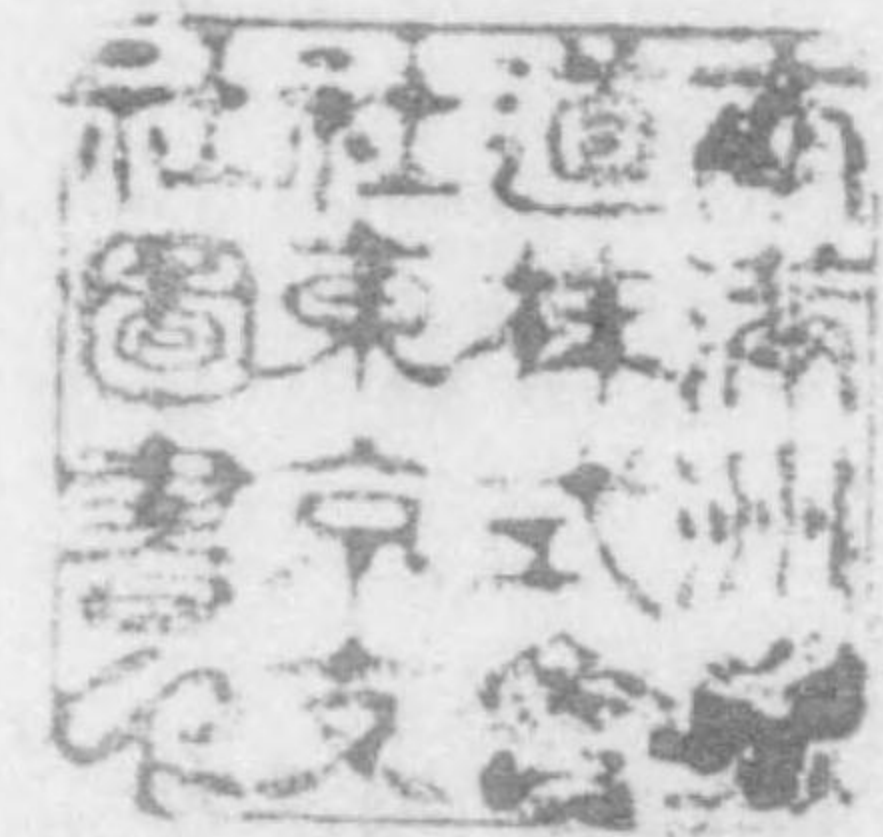 南滿洲鐵
道株式會
社東京支
社圖書印